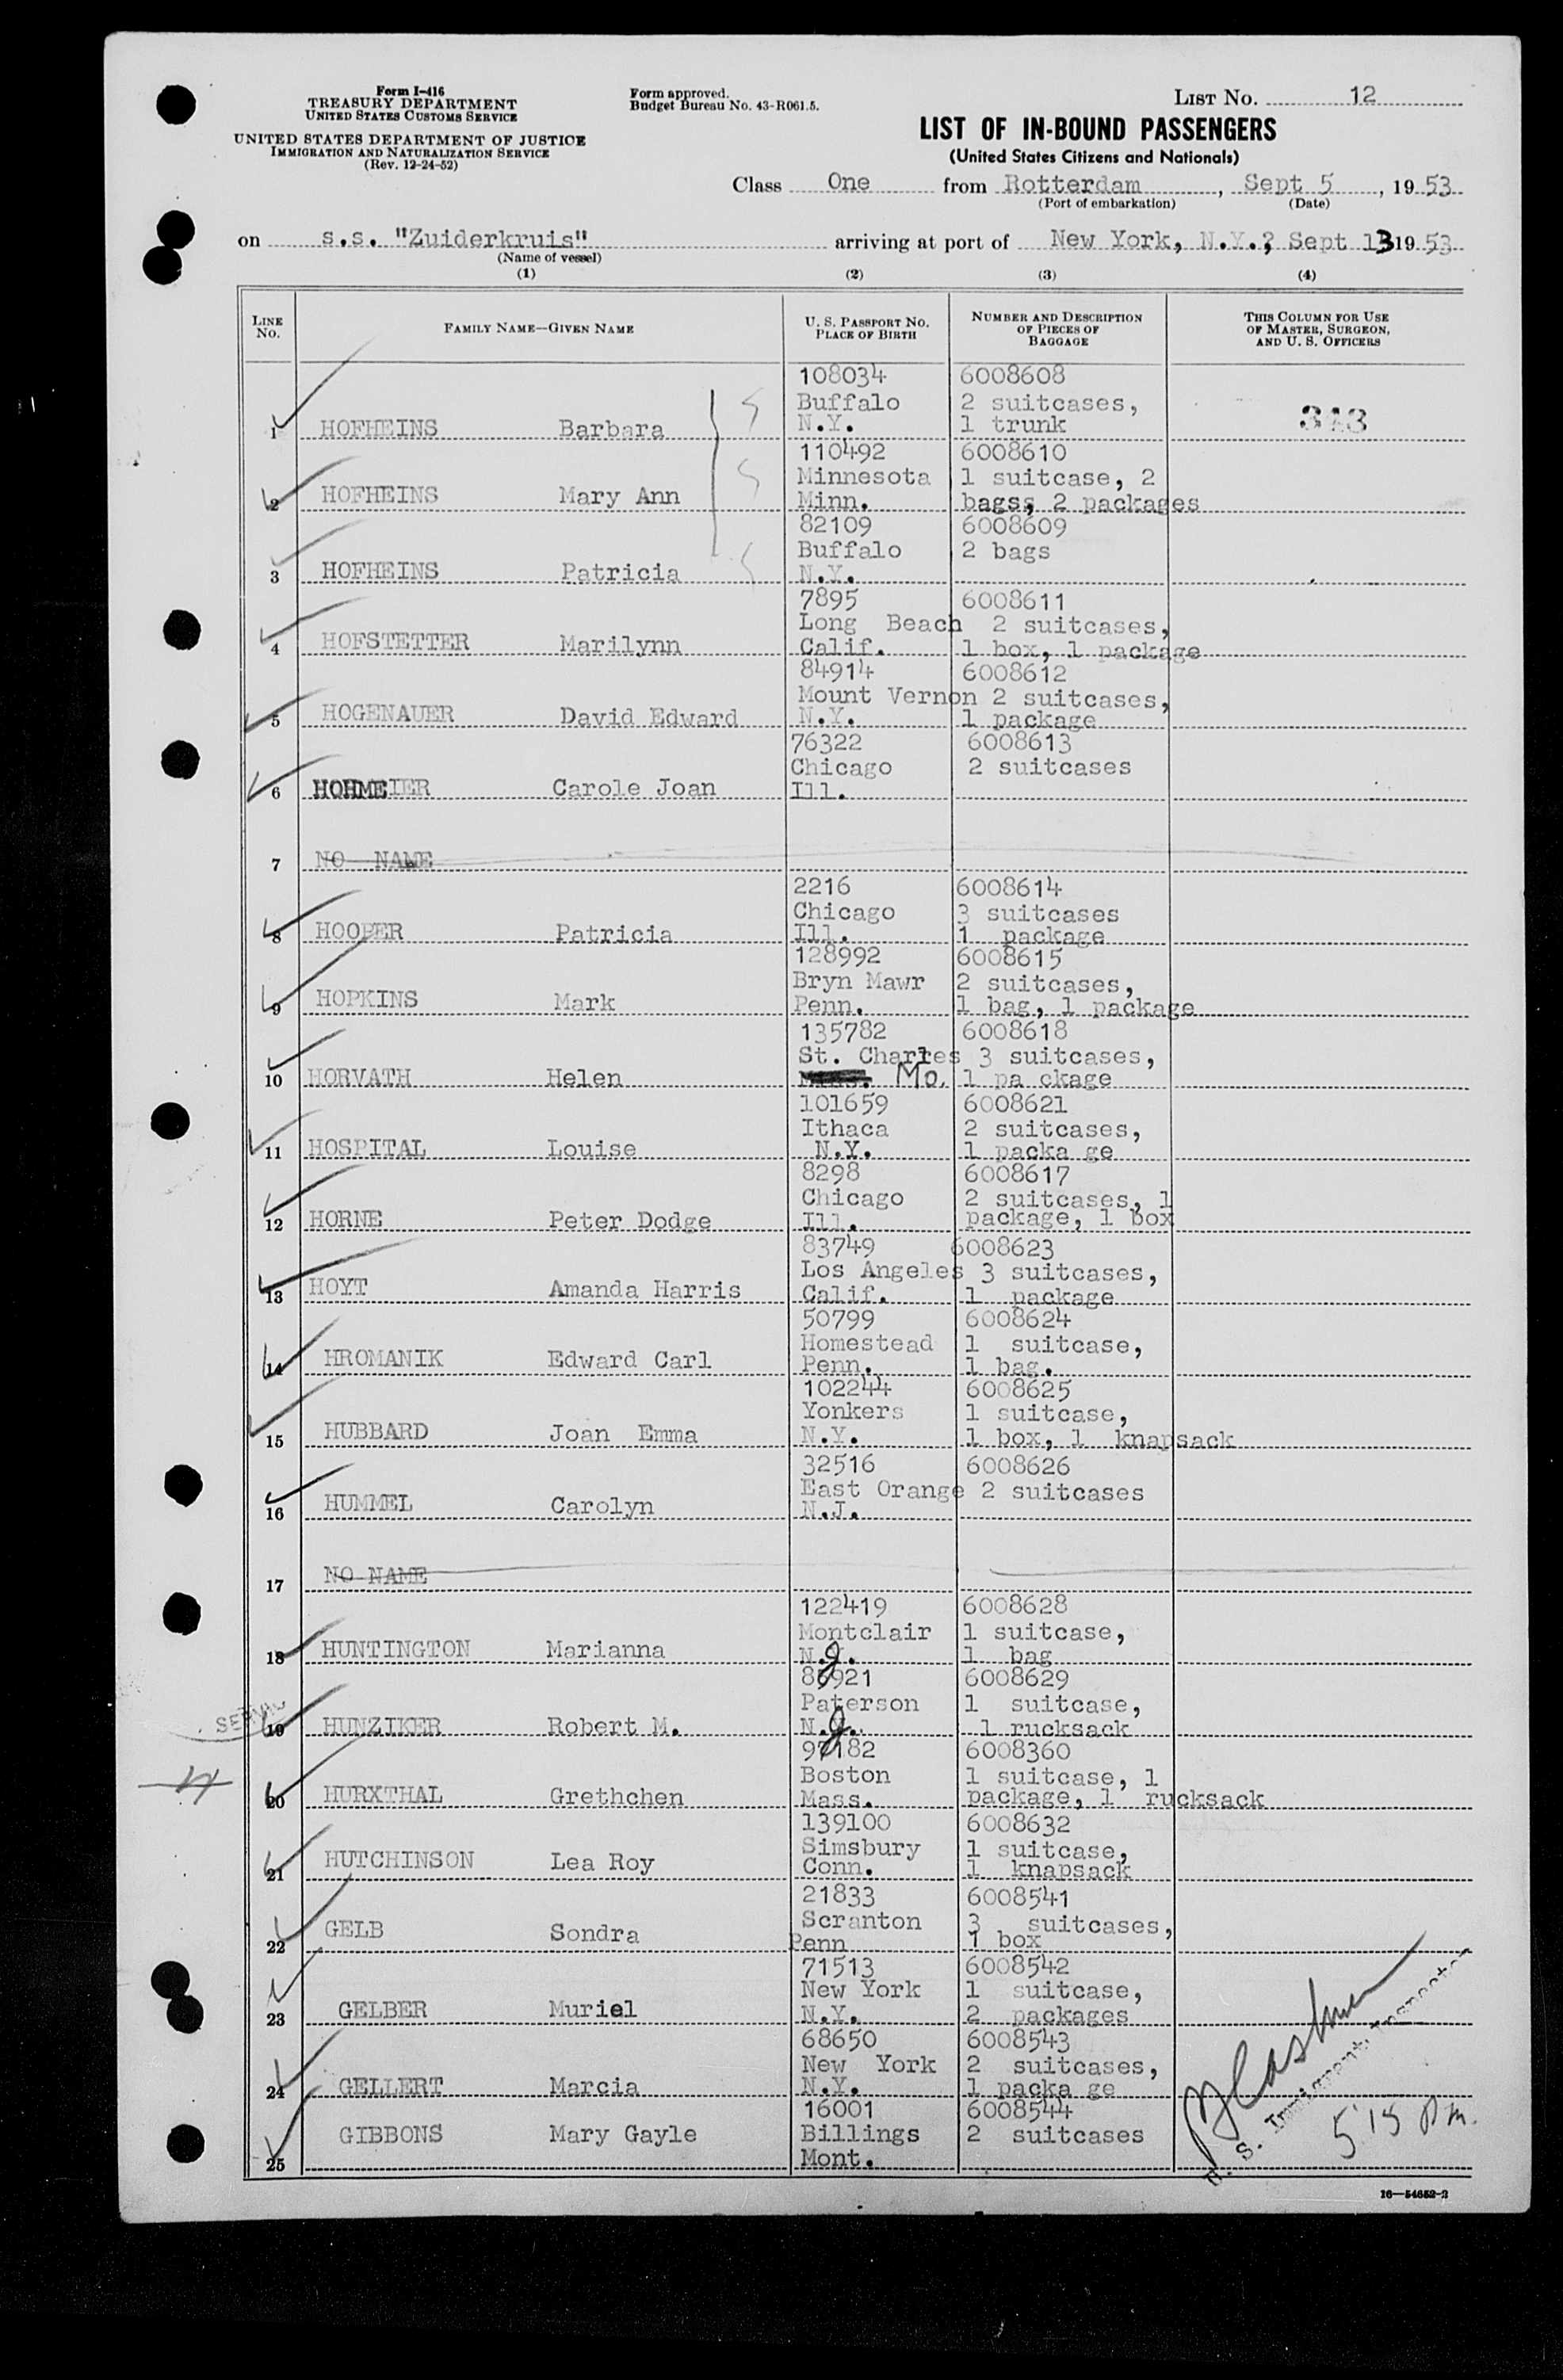 Form I-416
TREASURY DEPARTMENT
UNITED STATES CUSTOMS SERVICE
UNITED STATES DEPARTMENT OF JUSTICE
IMMIGRATION AND NATURALIZATION SERVICE
(Rev. 12-24-52)
Form approved.
Budget Bureau No. 43-R061.5.
LIST NO. 12
LIST OF IN-BOUND PASSENGERS
(United States Citizens and Nationals)
Class One from Rotterdam, Sept 5, 1953
(Port of embarkation) (Date)
on s.s. "Zuiderkruis" arriving at port of New York, N.Y., Sept 13 1953
(Name of vessel)
(1) (2) (3) (4)
LINE NO. FAMILY NAME—GIVEN NAME U. S. PASSPORT NO. PLACE OF BIRTH NUMBER AND DESCRIPTION OF PIECES OF BAGGAGE THIS COLUMN FOR USE OF MASTER, SURGEON, AND U. S. OFFICERS
108034 6008608
Buffalo 2 suitcases,
1 HOFHEINS Barbara N.Y. 1 trunk 313
110492 6008610
Minnesota 1 suitcase, 2
2 HOFHEINS Mary Ann Minn. bags, 2 packages
82109 6008609
Buffalo 2 bags
3 HOFHEINS Patricia N.Y.
7895 6008611
Long Beach 2 suitcases,
4 HOFSTETTER Marilynn Calif. 1 box, 1 package
84914 6008612
Mount Vernon 2 suitcases,
5 HOGENAUER David Edward N.Y. 1 package
76322 6008613
Chicago 2 suitcases
6 HOHMEIER Carole Joan Ill.
7 NO NAME
2216 6008614
Chicago 3 suitcases
8 HOOPER Patricia Ill. 1 package
128992 6008615
Bryn Mawr 2 suitcases,
9 HOPKINS Mark Penn. 1 bag, 1 package
135782 6008618
St. Charles 3 suitcases,
10 HORVATH Helen Mo. 1 pa ckage
101659 6008621
Ithaca 2 suitcases,
11 HOSPITAL Louise N.Y. 1 packa ge
8298 6008617
Chicago 2 suitcases, 1
12 HORNE Peter Dodge Ill. package, 1 box
83749 6008623
Los Angeles 3 suitcases,
13 HOYT Amanda Harris Calif. 1 package
50799 6008624
Homestead 1 suitcase,
14 HROMANIK Edward Carl Penn. 1 bag.
102244 6008625
Yonkers 1 suitcase,
15 HUBBARD Joan Emma N.Y. 1 box, 1 knapsack
32516 6008626
East Orange 2 suitcases
16 HUMMEL Carolyn N.J.
17 NO NAME
122419 6008628
Montclair 1 suitcase,
18 HUNTINGTON Marianna N.J. 1 bag
86921 6008629
Paterson 1 suitcase,
19 HUNZIKER Robert M. N.J. 1 rucksack
97182 6008360
Boston 1 suitcase, 1
20 HURXTHAL Grethchen Mass. package, 1 rucksack
139100 6008632
Simsbury 1 suitcase,
21 HUTCHINSON Lea Roy Conn. 1 knapsack
21833 6008541
Scranton 3 suitcases,
22 GELB Sondra Penn 1 box
71513 6008542
New York 1 suitcase,
23 GELBER Muriel N.Y. 2 packages
68650 6008543
New York 2 suitcases,
24 GELLERT Marcia N.Y. 1 packa ge
16001 6008544
GIBBONS Mary Gayle Billings 2 suitcases
25 Mont.
U. S. Immigrant Inspector
5:15 pm.
16—54652-2